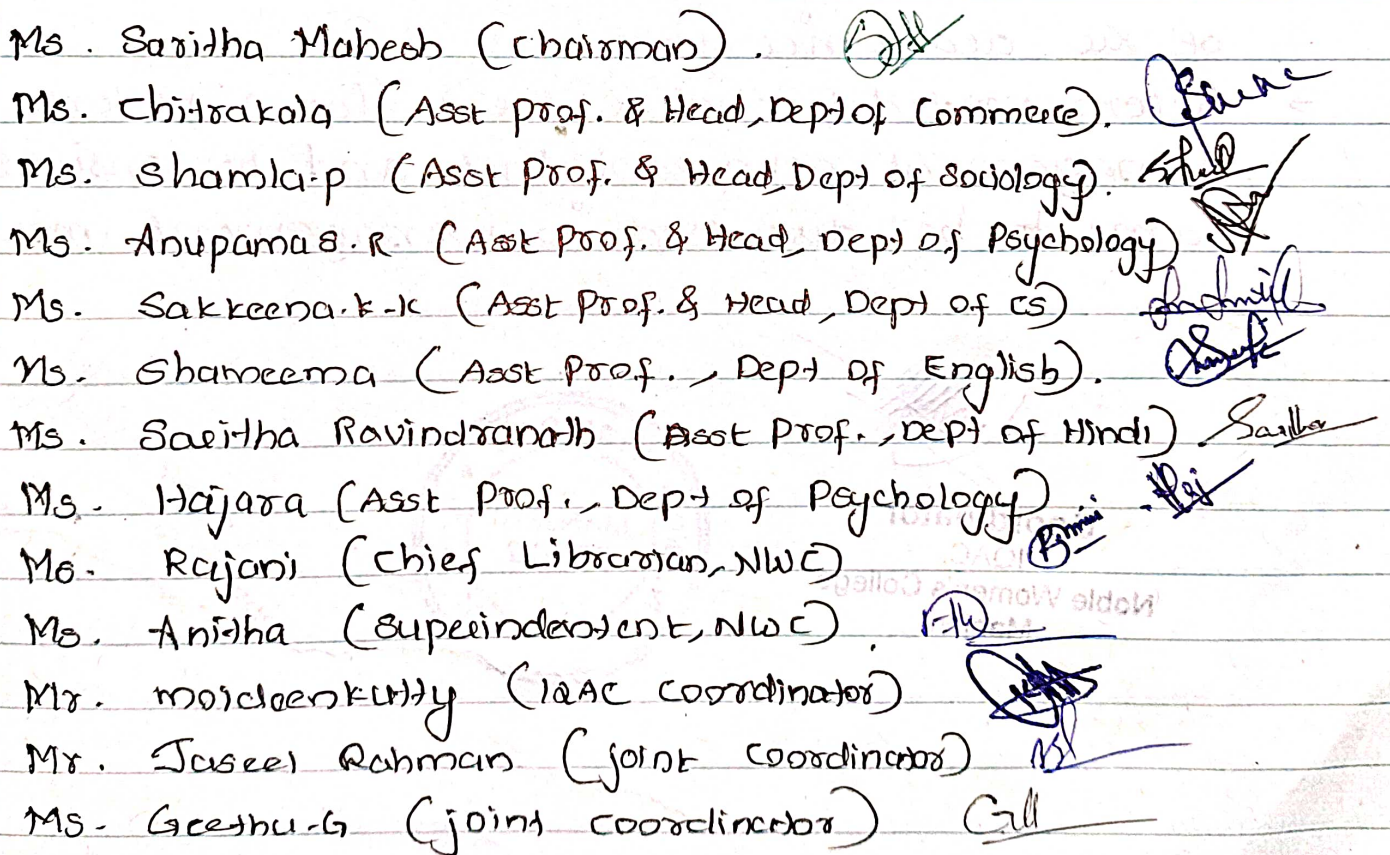 Ms. Saritha Mahesh (Chairman).
Ms. Chitrakala (Asst Prof. & Head, Dept of Commerce).
Ms. Shamla.p (Asst Prof. & Head, Dept of Sociology).
Ms. Anupama S.R (Asst Prof. & Head, Dept of Psychology)
Ms. Sakkeena.k.k (Asst Prof. & Head, Dept of CS)
Ms. Shameema (Asst Prof., Dept of English).
Ms. Saritha Ravindranath (Asst Prof., Dept of Hindi)
Ms. Hajara (Asst Prof., Dept of Psychology)
Ms. Rajani (Chief Librarian, NWC)
Ms. Anitha (Supeeindentent, NWC).
Mr. moideenkutty (IQAC coordinator)
Mr. Jaseel Rahman (joint coordinator)
Ms. Geethu.G (joint coordinator)